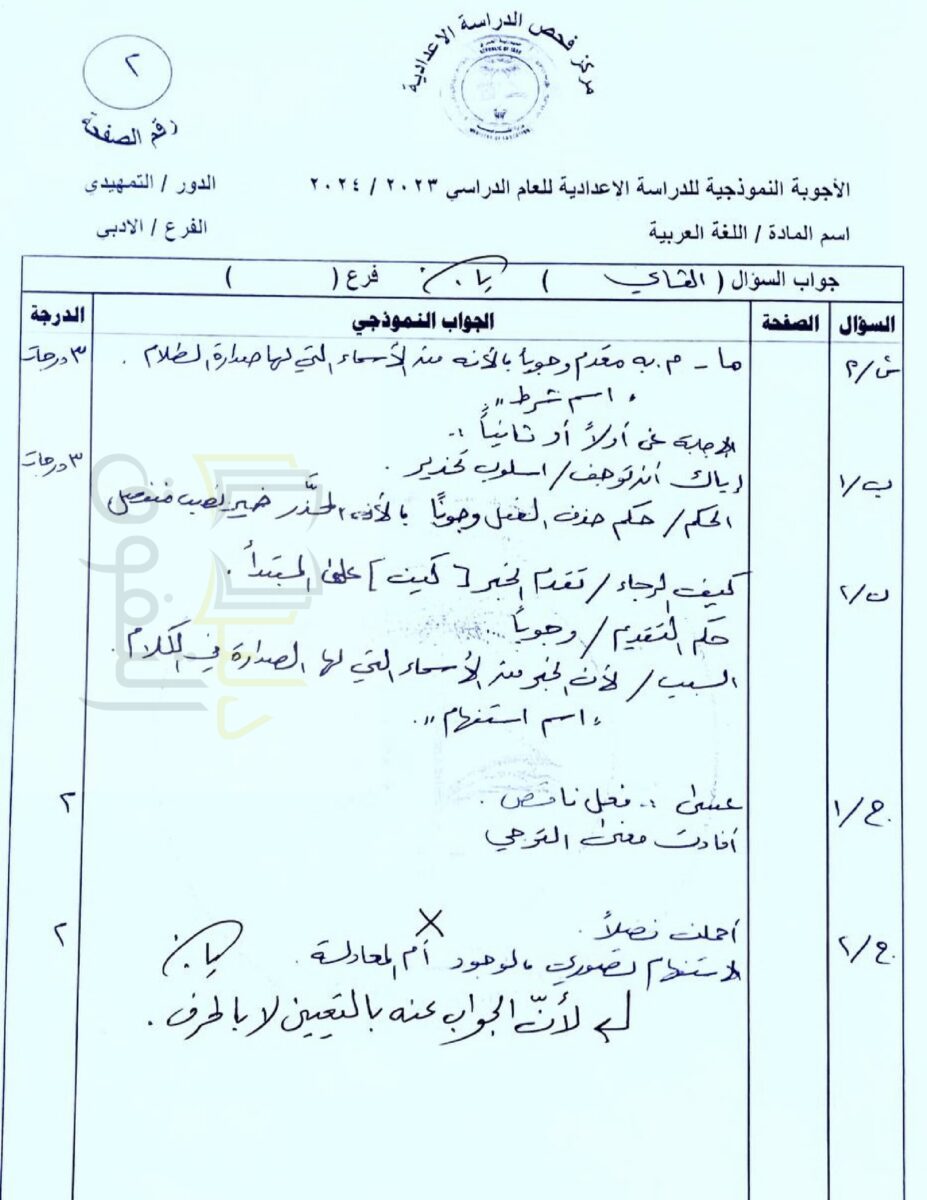 مركز فحص الدراسة الاعدادية
REPUBLIC OF IRAQ
MINISTRY OF EDUCATION
٢
رقم الصفحة
الأجوبة النموذجية للدراسة الإعدادية للعام الدراسي ٢٠٢٣ / ٢٠٢٤
الدور / التمهيدي
اسم المادة / اللغة العربية
الفرع / الادبي
جواب السؤال ( الثاني ) فرع ( )
السؤال الصفحة الجواب النموذجي الدرجة
ش/٣ ما - م. به مقدم وجوباً لأنه من الأسماء التي لها صدارة الكلام . ٣ درجات
"اسم شرط".
الاجابة عن أولاً أو ثانياً :-
ب/١ إياك أن توجف / اسلوب تحذير . ٣ درجات
الحكم / حكم حذف الفعل وجوباً لأن المحذَّر ضمير نصب منفصل
ب/٢ كيف الرجاء / تقدم الخبر [كيف] على المبتدأ .
حكم التقديم / وجوباً
السبب / لأن الخبر من الأسماء التي لها الصدارة في الكلام .
"اسم استفهام".
ج/١ عسى :- فعل ناقص . ٢
أفادت معنى الترجي
ج/٢ أحملت نصلاً . ٢
الاستفهام تصوري لوجود أم المعادلة .
لأنّ الجواب عنه بالتعيين لا بالحرف .
دار
التفوق